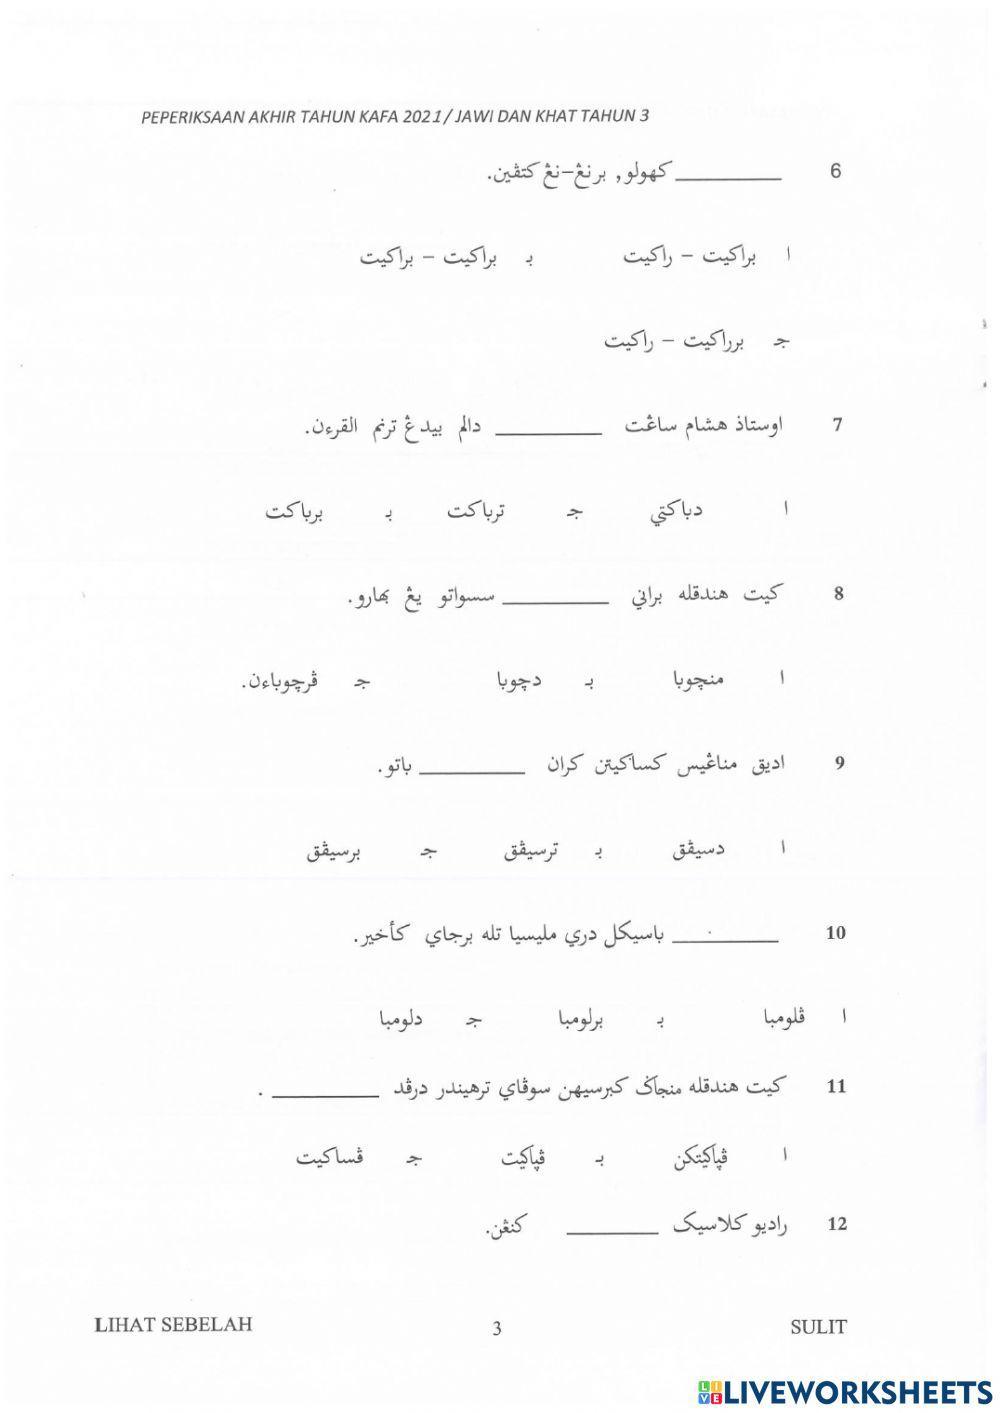 PEPERIKSAAN AKHIR TAHUN KAFA 2021/ JAWI DAN KHAT TAHUN 3
6 __________ کهولو, برنڠ–نڠ کتڤين.
ا براکيت – راکيت بـ براکيت – براکيت
جـ برراکيت – راکيت
7 اوستاذ هشام ساڠت __________ دالم بيدڠ ترنم القرءن.
ا دباکتي جـ ترباکت بـ برباکت
8 کيت هندقله براني __________ سسواتو يڠ بهارو.
ا منچوبا بـ دچوبا جـ ڤرچوباءن.
9 اديق مناڠيس کساکيتن کران __________ باتو.
ا دسيڤق بـ ترسيڤق جـ برسيڤق
10 __________ باسيکل دري مليسيا تله برجاي کأخير.
ا ڤلومبا بـ برلومبا جـ دلومبا
11 کيت هندقله منجاݢ کبرسيهن سوڤاي ترهيندر درڤد __________ .
ا ڤڽاکيتکن بـ ڤڽاکيت جـ ڤساکيت
12 راديو کلاسيک __________ کنڠن.
LIHAT SEBELAH 3 SULIT
LIVEWORKSHEETS